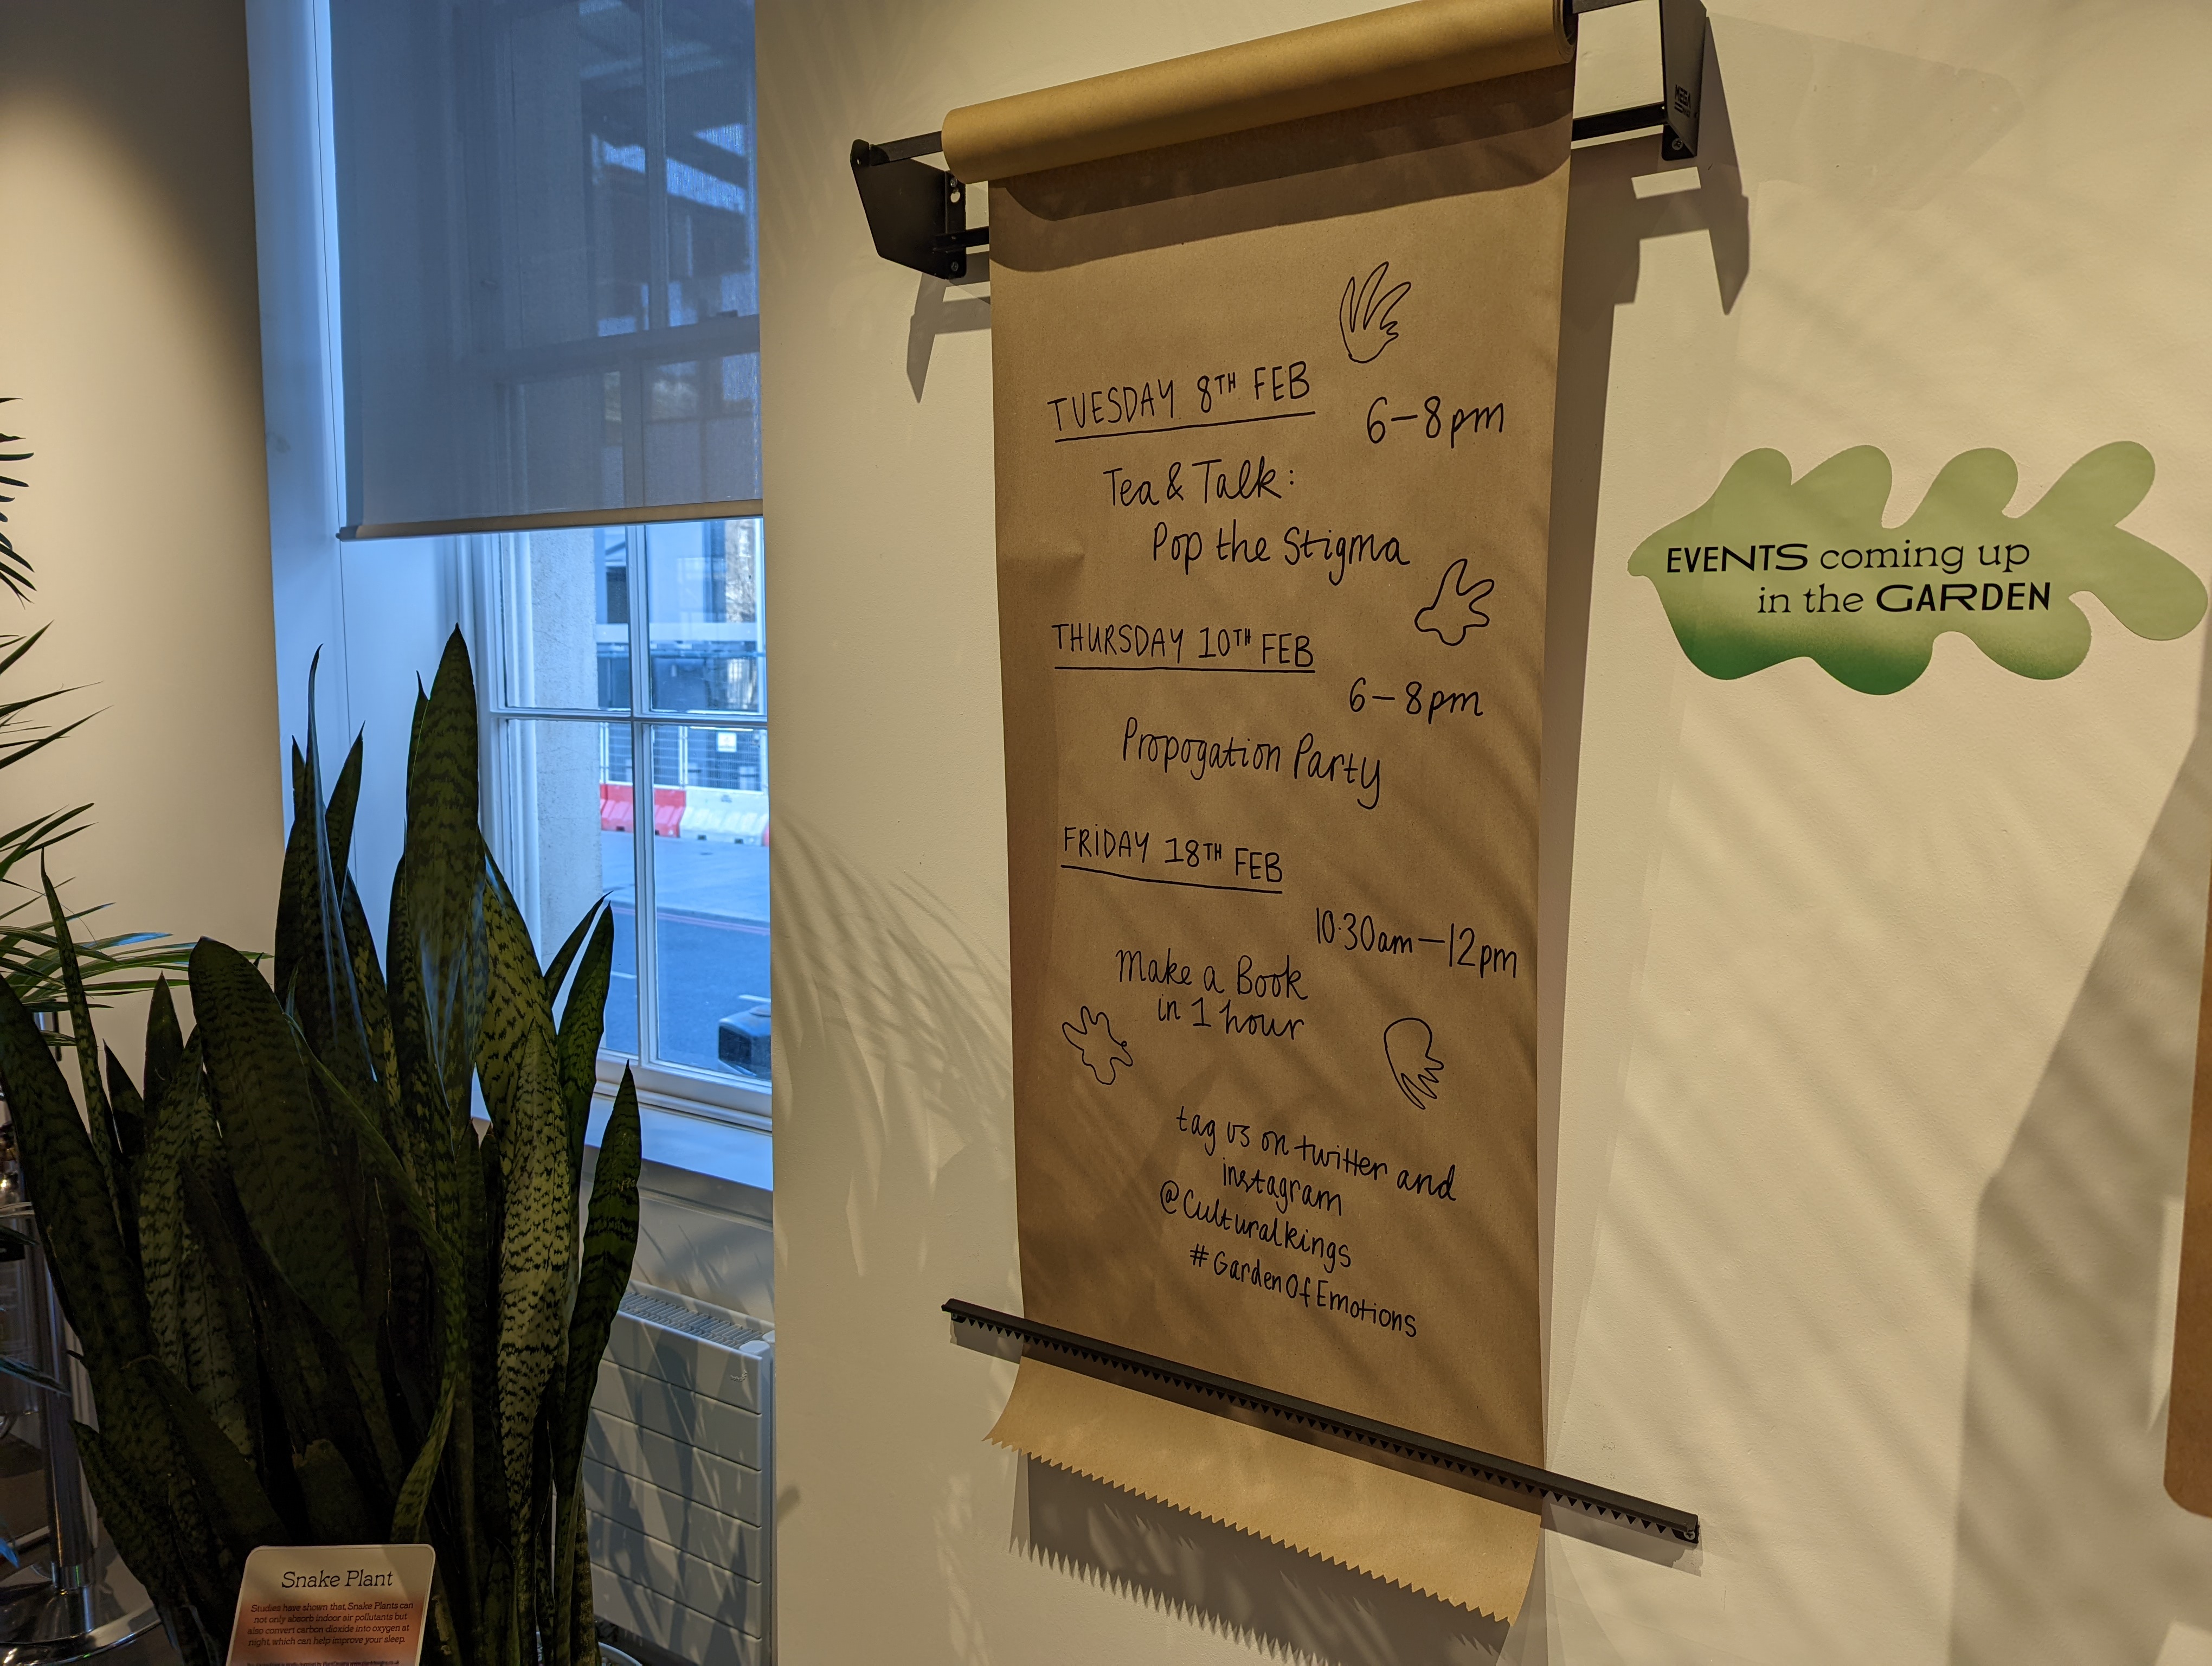 TUESDAY 8TH FEB
6-8pm
Tea & Talk:
Pop the Stigma
THURSDAY 10TH FEB
6-8pm
Propogation Party
FRIDAY 18TH FEB
10.30am-12pm
Make a Book
in 1 hour
tag us on twitter and
instagram
@Culturalkings
#GardenOfEmotions
EVENTS coming up
in the GARDEN
Snake Plant
Studies have shown that, Snake Plants can
not only absorb indoor air pollutants but
also convert carbon dioxide into oxygen at
night, which can help improve your sleep.